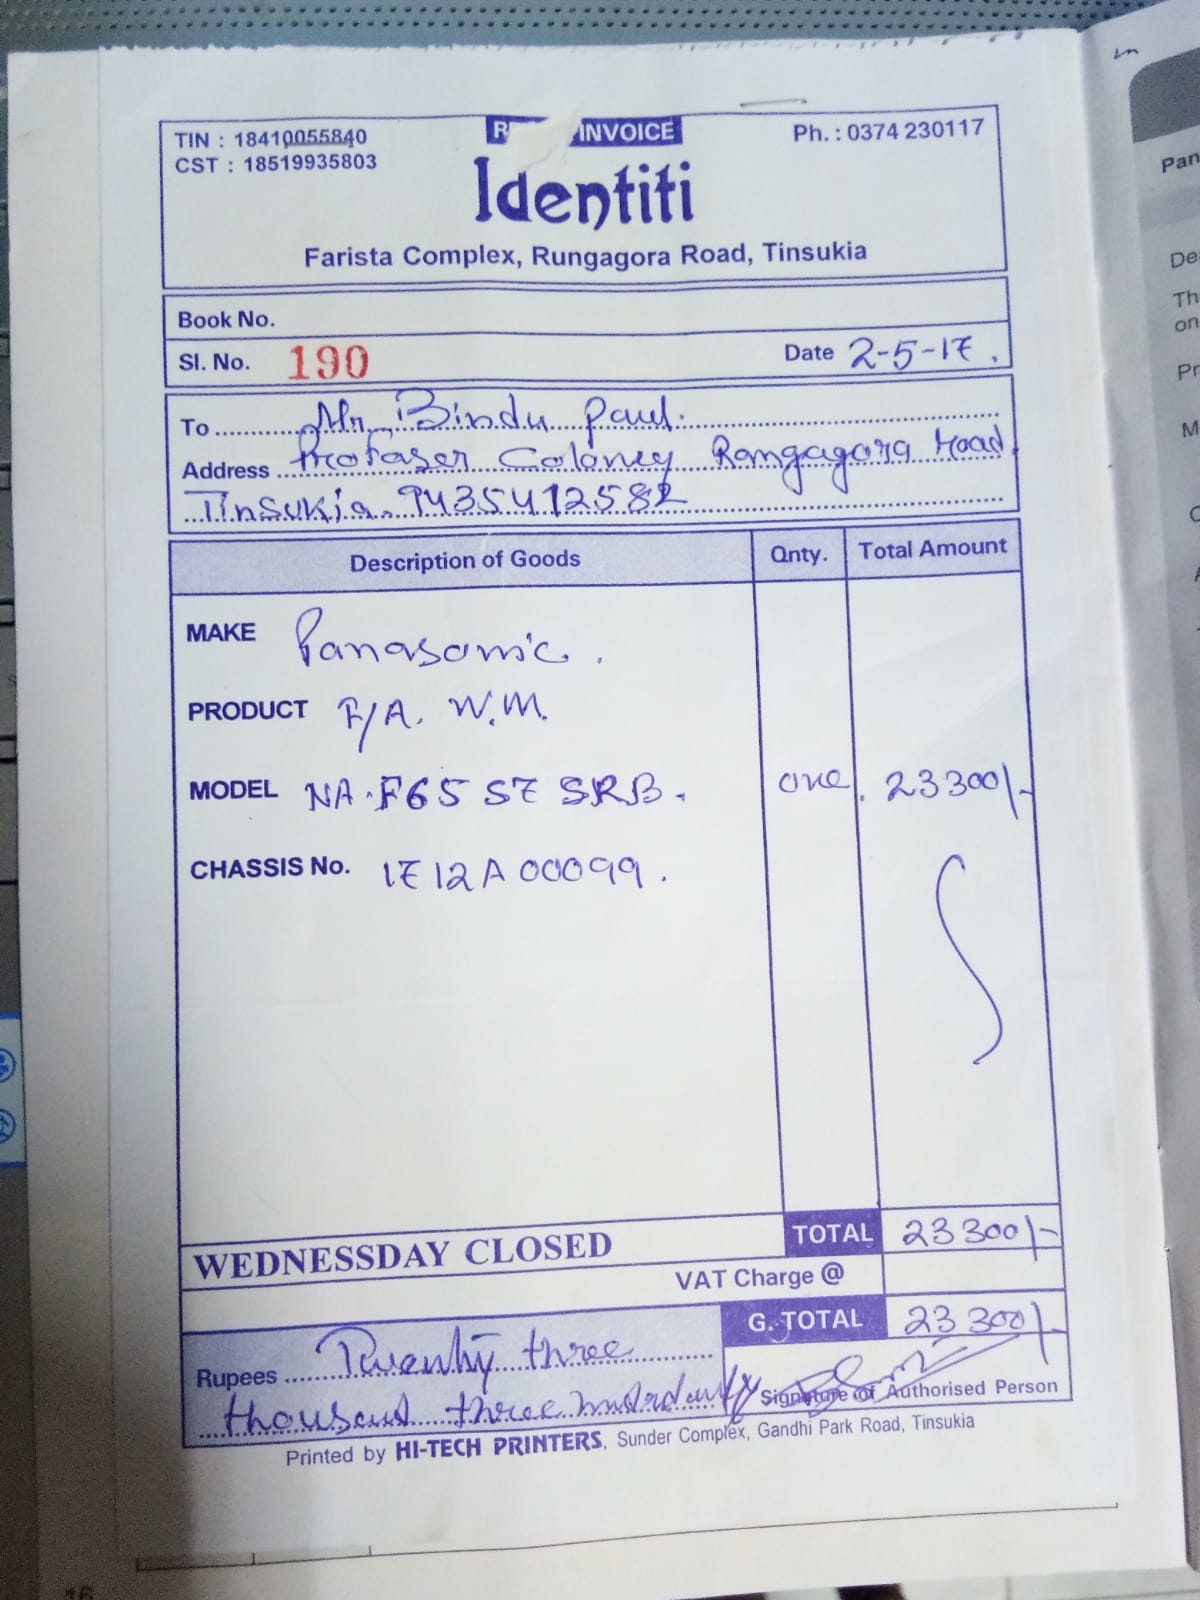 TIN : 18410055840
CST : 18519935803
INVOICE
Ph. : 0374 230117
Identiti
Farista Complex, Rungagora Road, Tinsukia
Book No.
Sl. No. 190
Date 2-5-17.
To Mr. Bindu Paul.
Address Profaser Coloney Rangagora Road
Tinsukia. 9435412582
Description of Goods Qnty. Total Amount
MAKE Panasonic.
PRODUCT F/A. W.M.
MODEL NA-F65 S7 SRB. one. 23300/-
CHASSIS No. 1712A00099.
WEDNESSDAY CLOSED
TOTAL 23300/-
VAT Charge @
G. TOTAL 23300/-
Rupees Twenty three
thousand three hundred only
Signature of Authorised Person
Printed by HI-TECH PRINTERS, Sunder Complex, Gandhi Park Road, Tinsukia
16
Pan
De
Th
on
Pr
M